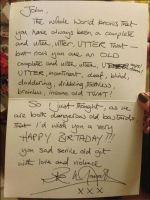 John,
The whole World knows that
you have always been a complete
and utter, utter, UTTER TWAT –
but now you are an OLD
complete and utter, utter,
UTTER, incontinent, deaf, blind,
doddering, dribbling, toothless,
brainless, insane old TWAT!
So I just thought, as we
are both dangerous old bastards
that I'd wish you a very
HAPPY BIRTHDAY??!
you sad senile old git
with love and violence
x x x